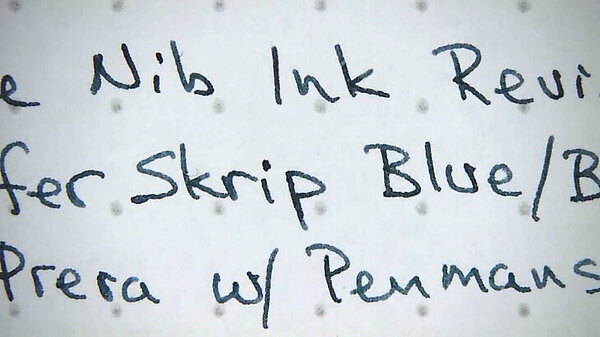 e Nib Ink Revi
fer Skrip Blue/B
Prera w/ Penmans